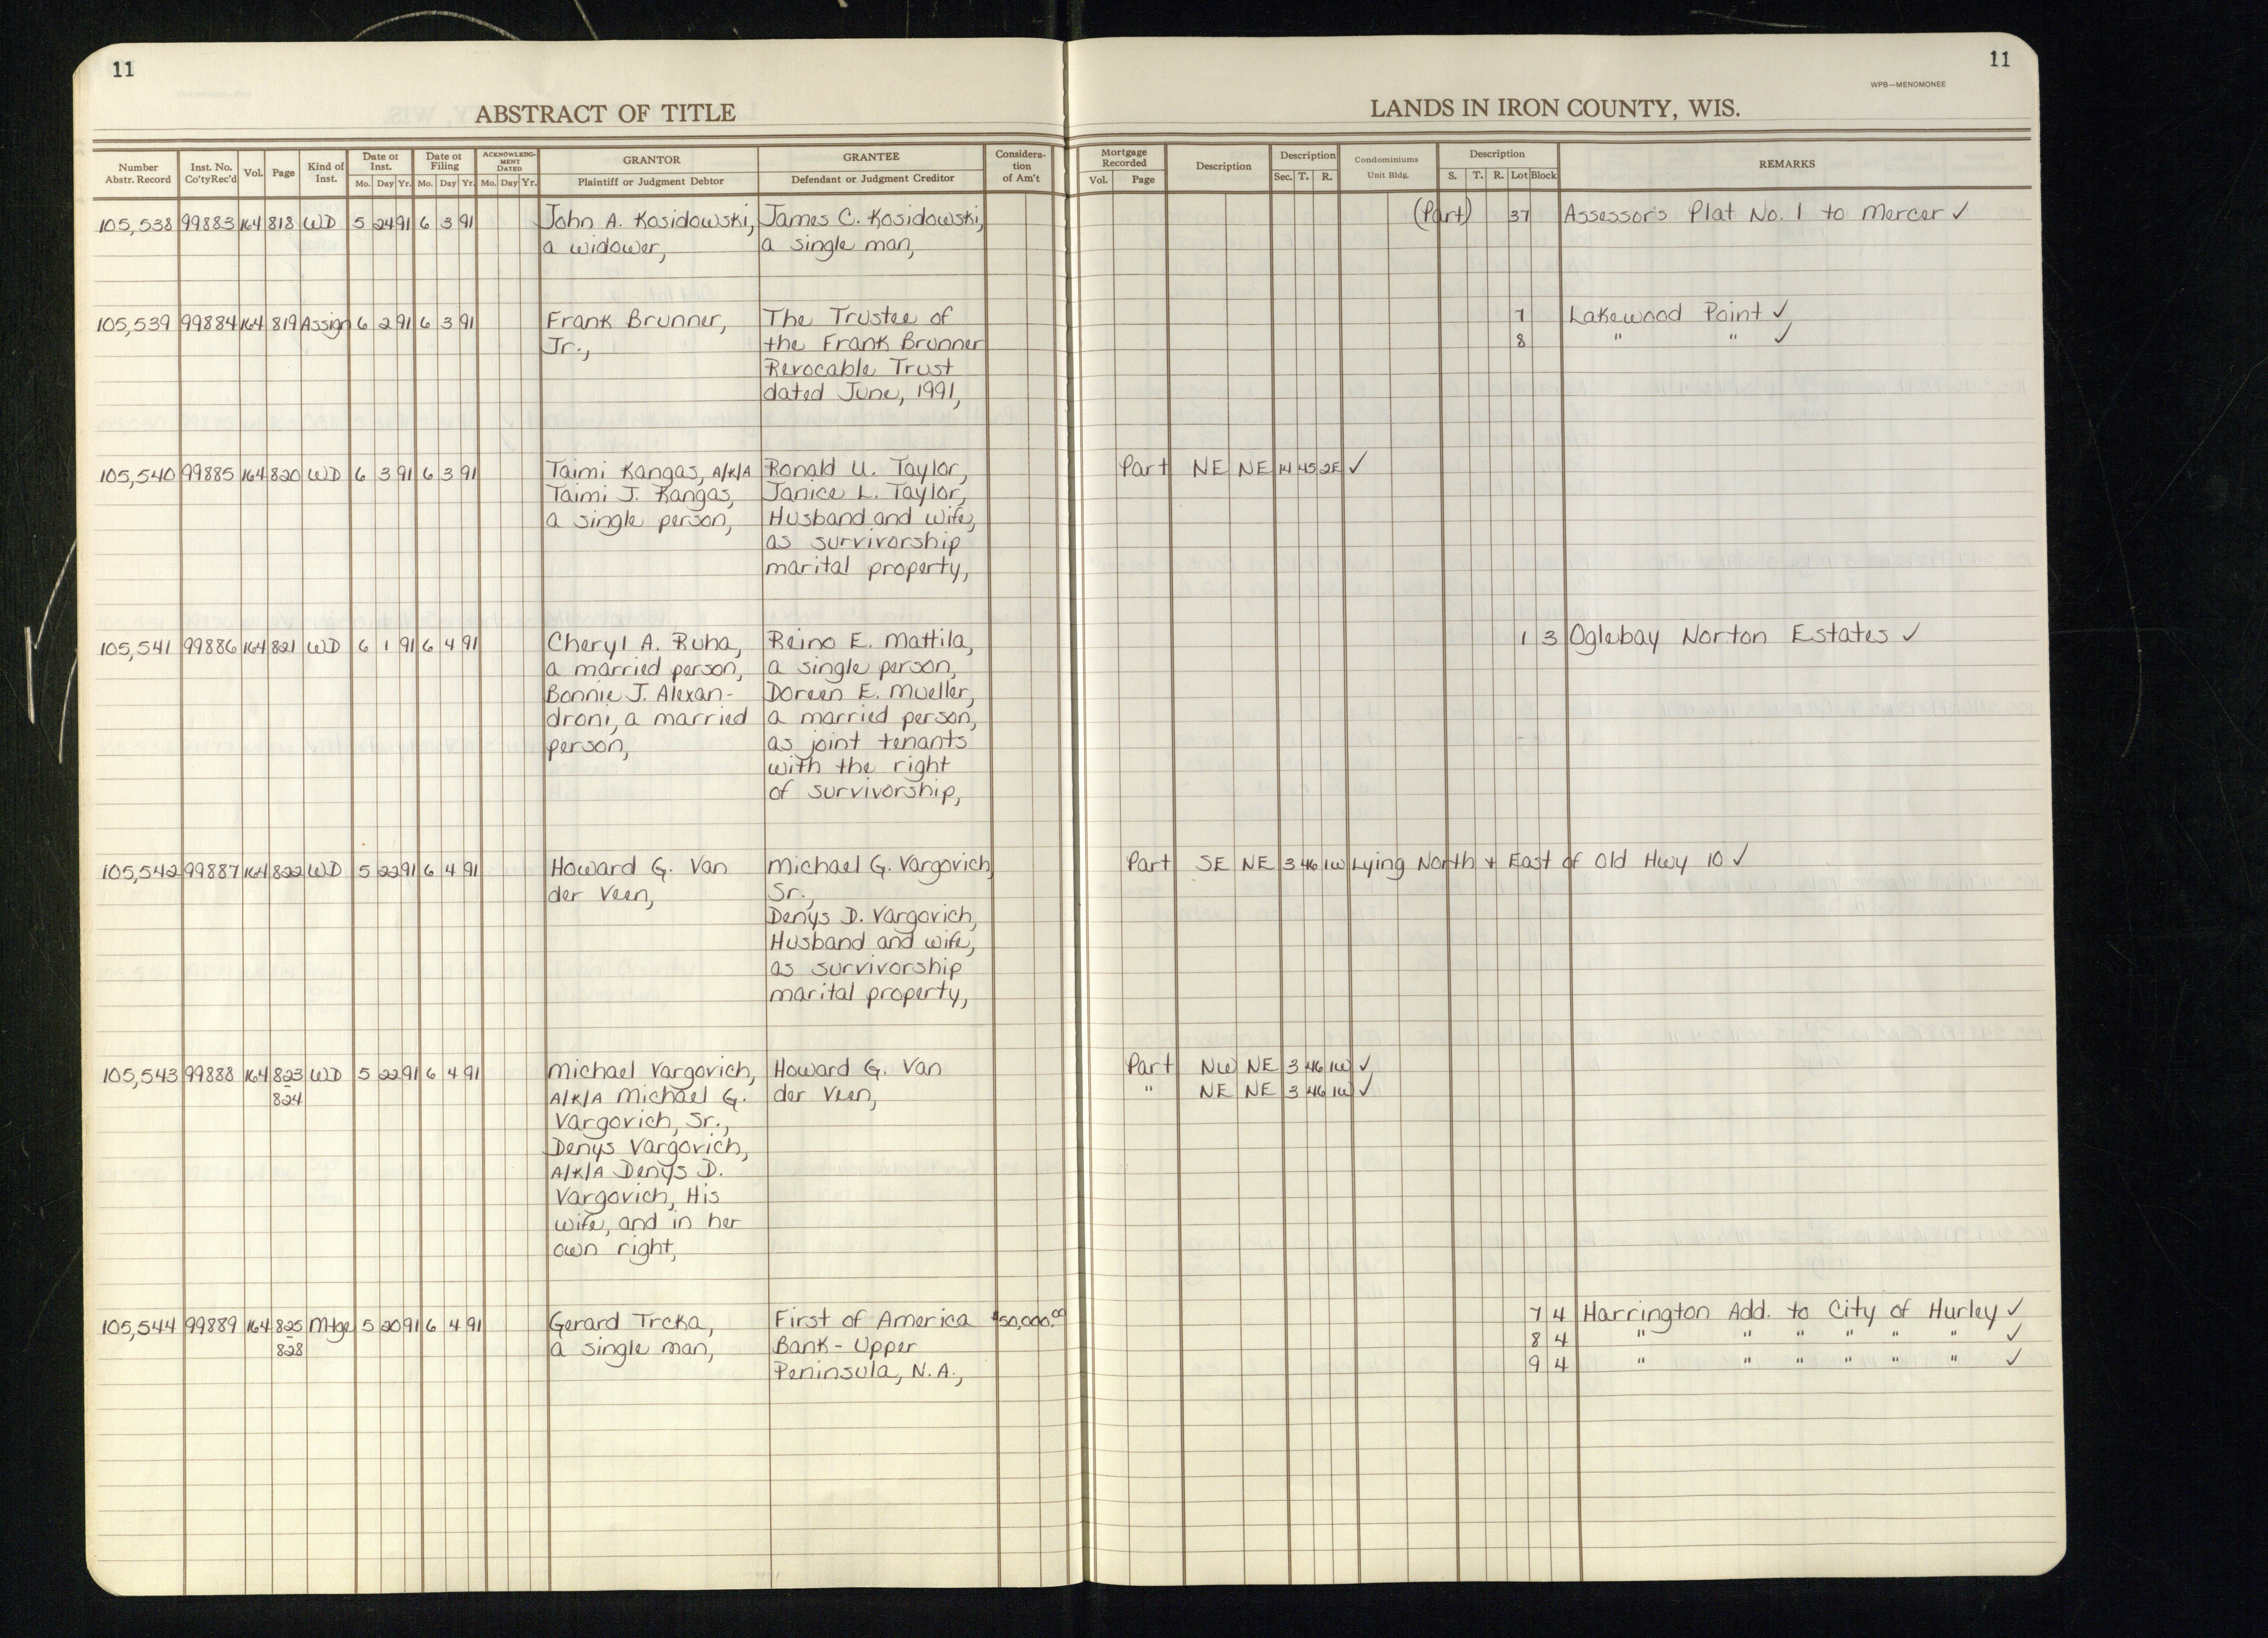 11
11
WPB—MENOMONEE
ABSTRACT OF TITLE
LANDS IN IRON COUNTY, WIS.
Number Abstr. Record | Inst. No. Co'ty Rec'd | Vol. | Page | Kind of Inst. | Date of Inst. Mo. Day Yr. | Date of Filing Mo. Day Yr. | ACKNOWLEDGMENT DATED Mo. Day Yr. | GRANTOR Plaintiff or Judgment Debtor | GRANTEE Defendant or Judgment Creditor | Consideration of Am't | Mortgage Recorded Vol. Page | Description | Description Sec. T. R. | Condominiums Unit Bldg. | Description S. T. R. Lot Block | REMARKS
105,538 99883 164 818 WD 5 24 91 6 3 91 John A. Kosidowski, James C. Kosidowski, (Part) 37 Assessor's Plat No. 1 to Mercer ✓
a widower, a single man,
105,539 99884 164 819 Assign 6 2 91 6 3 91 Frank Brunner, The Trustee of 7 Lakewood Point ✓
Jr., the Frank Brunner 8 " " ✓
Revocable Trust
dated June, 1991,
105,540 99885 164 820 WD 6 3 91 6 3 91 Taimi Kangas, A/K/A Ronald U. Taylor, Part NE NE 14 45 2E ✓
Taimi J. Kangas, Janice L. Taylor,
a single person, Husband and wife,
as survivorship
marital property,
105,541 99886 164 821 WD 6 1 91 6 4 91 Cheryl A. Ruha, Reino E. Mattila, 1 3 Oglebay Norton Estates ✓
a married person, a single person,
Bonnie J. Alexan- Doreen E. Mueller,
droni, a married a married person,
person, as joint tenants
with the right
of survivorship,
105,542 99887 164 822 WD 5 22 91 6 4 91 Howard G. Van Michael G. Vargovich Part SE NE 3 46 1W Lying North + East of Old Hwy 10 ✓
der Veen, Sr.,
Denys D. Vargovich,
Husband and wife,
as survivorship
marital property,
105,543 99888 164 823 WD 5 22 91 6 4 91 Michael Vargovich, Howard G. Van Part NW NE 3 46 1W ✓
824 A/K/A Michael G. der Veen, " NE NE 3 46 1W ✓
Vargovich, Sr.,
Denys Vargovich,
A/K/A Denys D.
Vargovich, His
wife, and in her
own right,
105,544 99889 164 825 Mtge 5 20 91 6 4 91 Gerard Trcka, First of America $50,000.00 7 4 Harrington Add. to City of Hurley ✓
828 a single man, Bank - Upper 8 4 " " " " " " ✓
Peninsula, N.A., 9 4 " " " " " " ✓